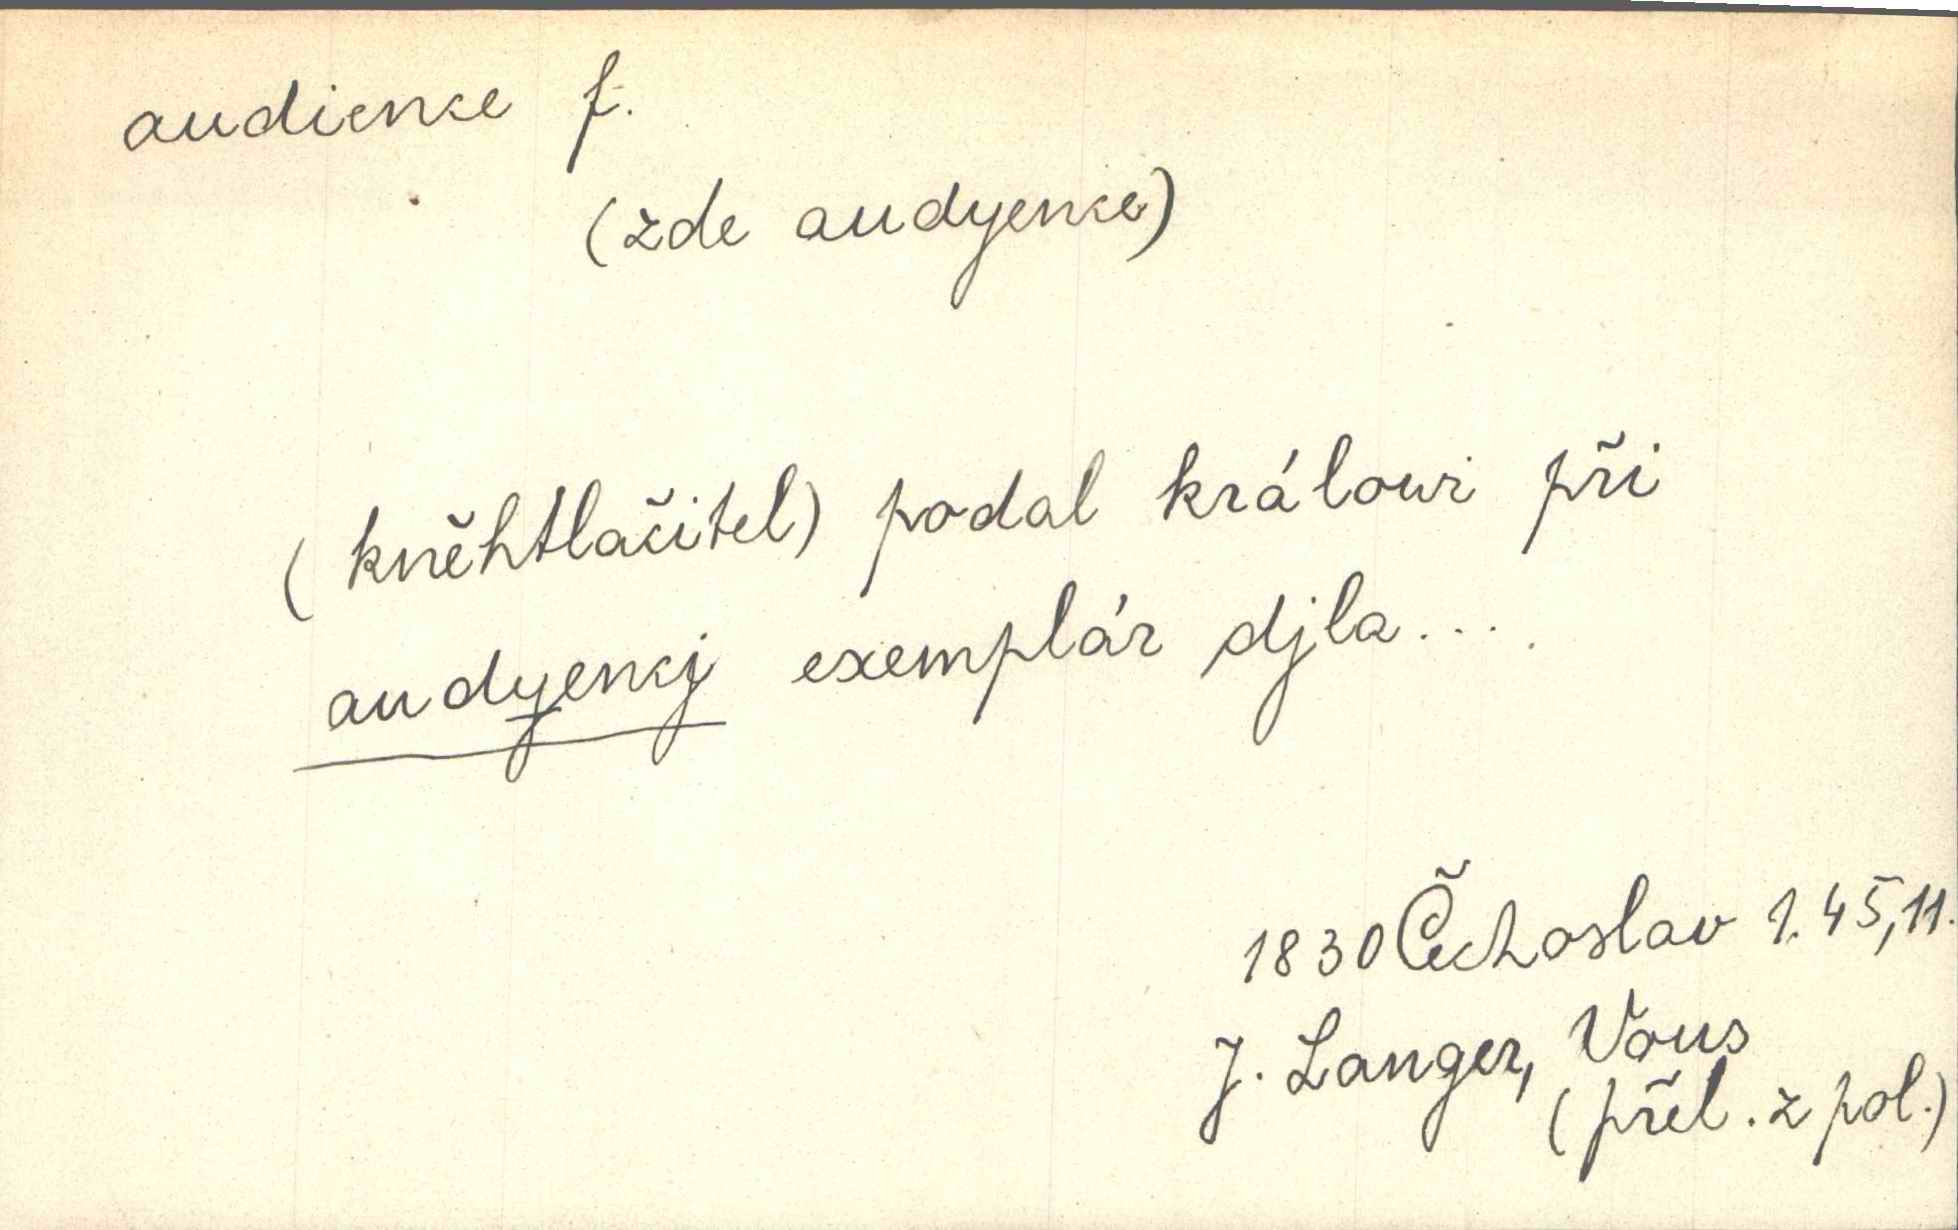 audience f.
(zde audyence)
(kněhtlačitel) podal králowi při
audyencj exemplár djla....
1830 Čechoslav 1.45,11.
J. Langer, Vous
(přel. z pol.)